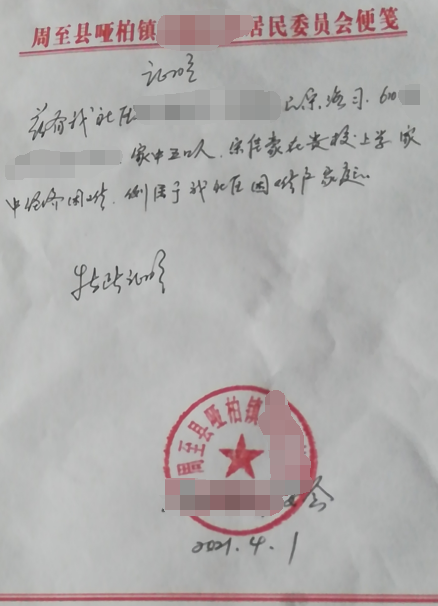 周至县哑柏镇 居民委员会便笺
证明
兹有我社区
家中五口人,宋佳豪在贵校上学家
中经济困难,倒居于我社区困难户家庭。
特此证明
周至县哑柏镇
会
2021.4.1